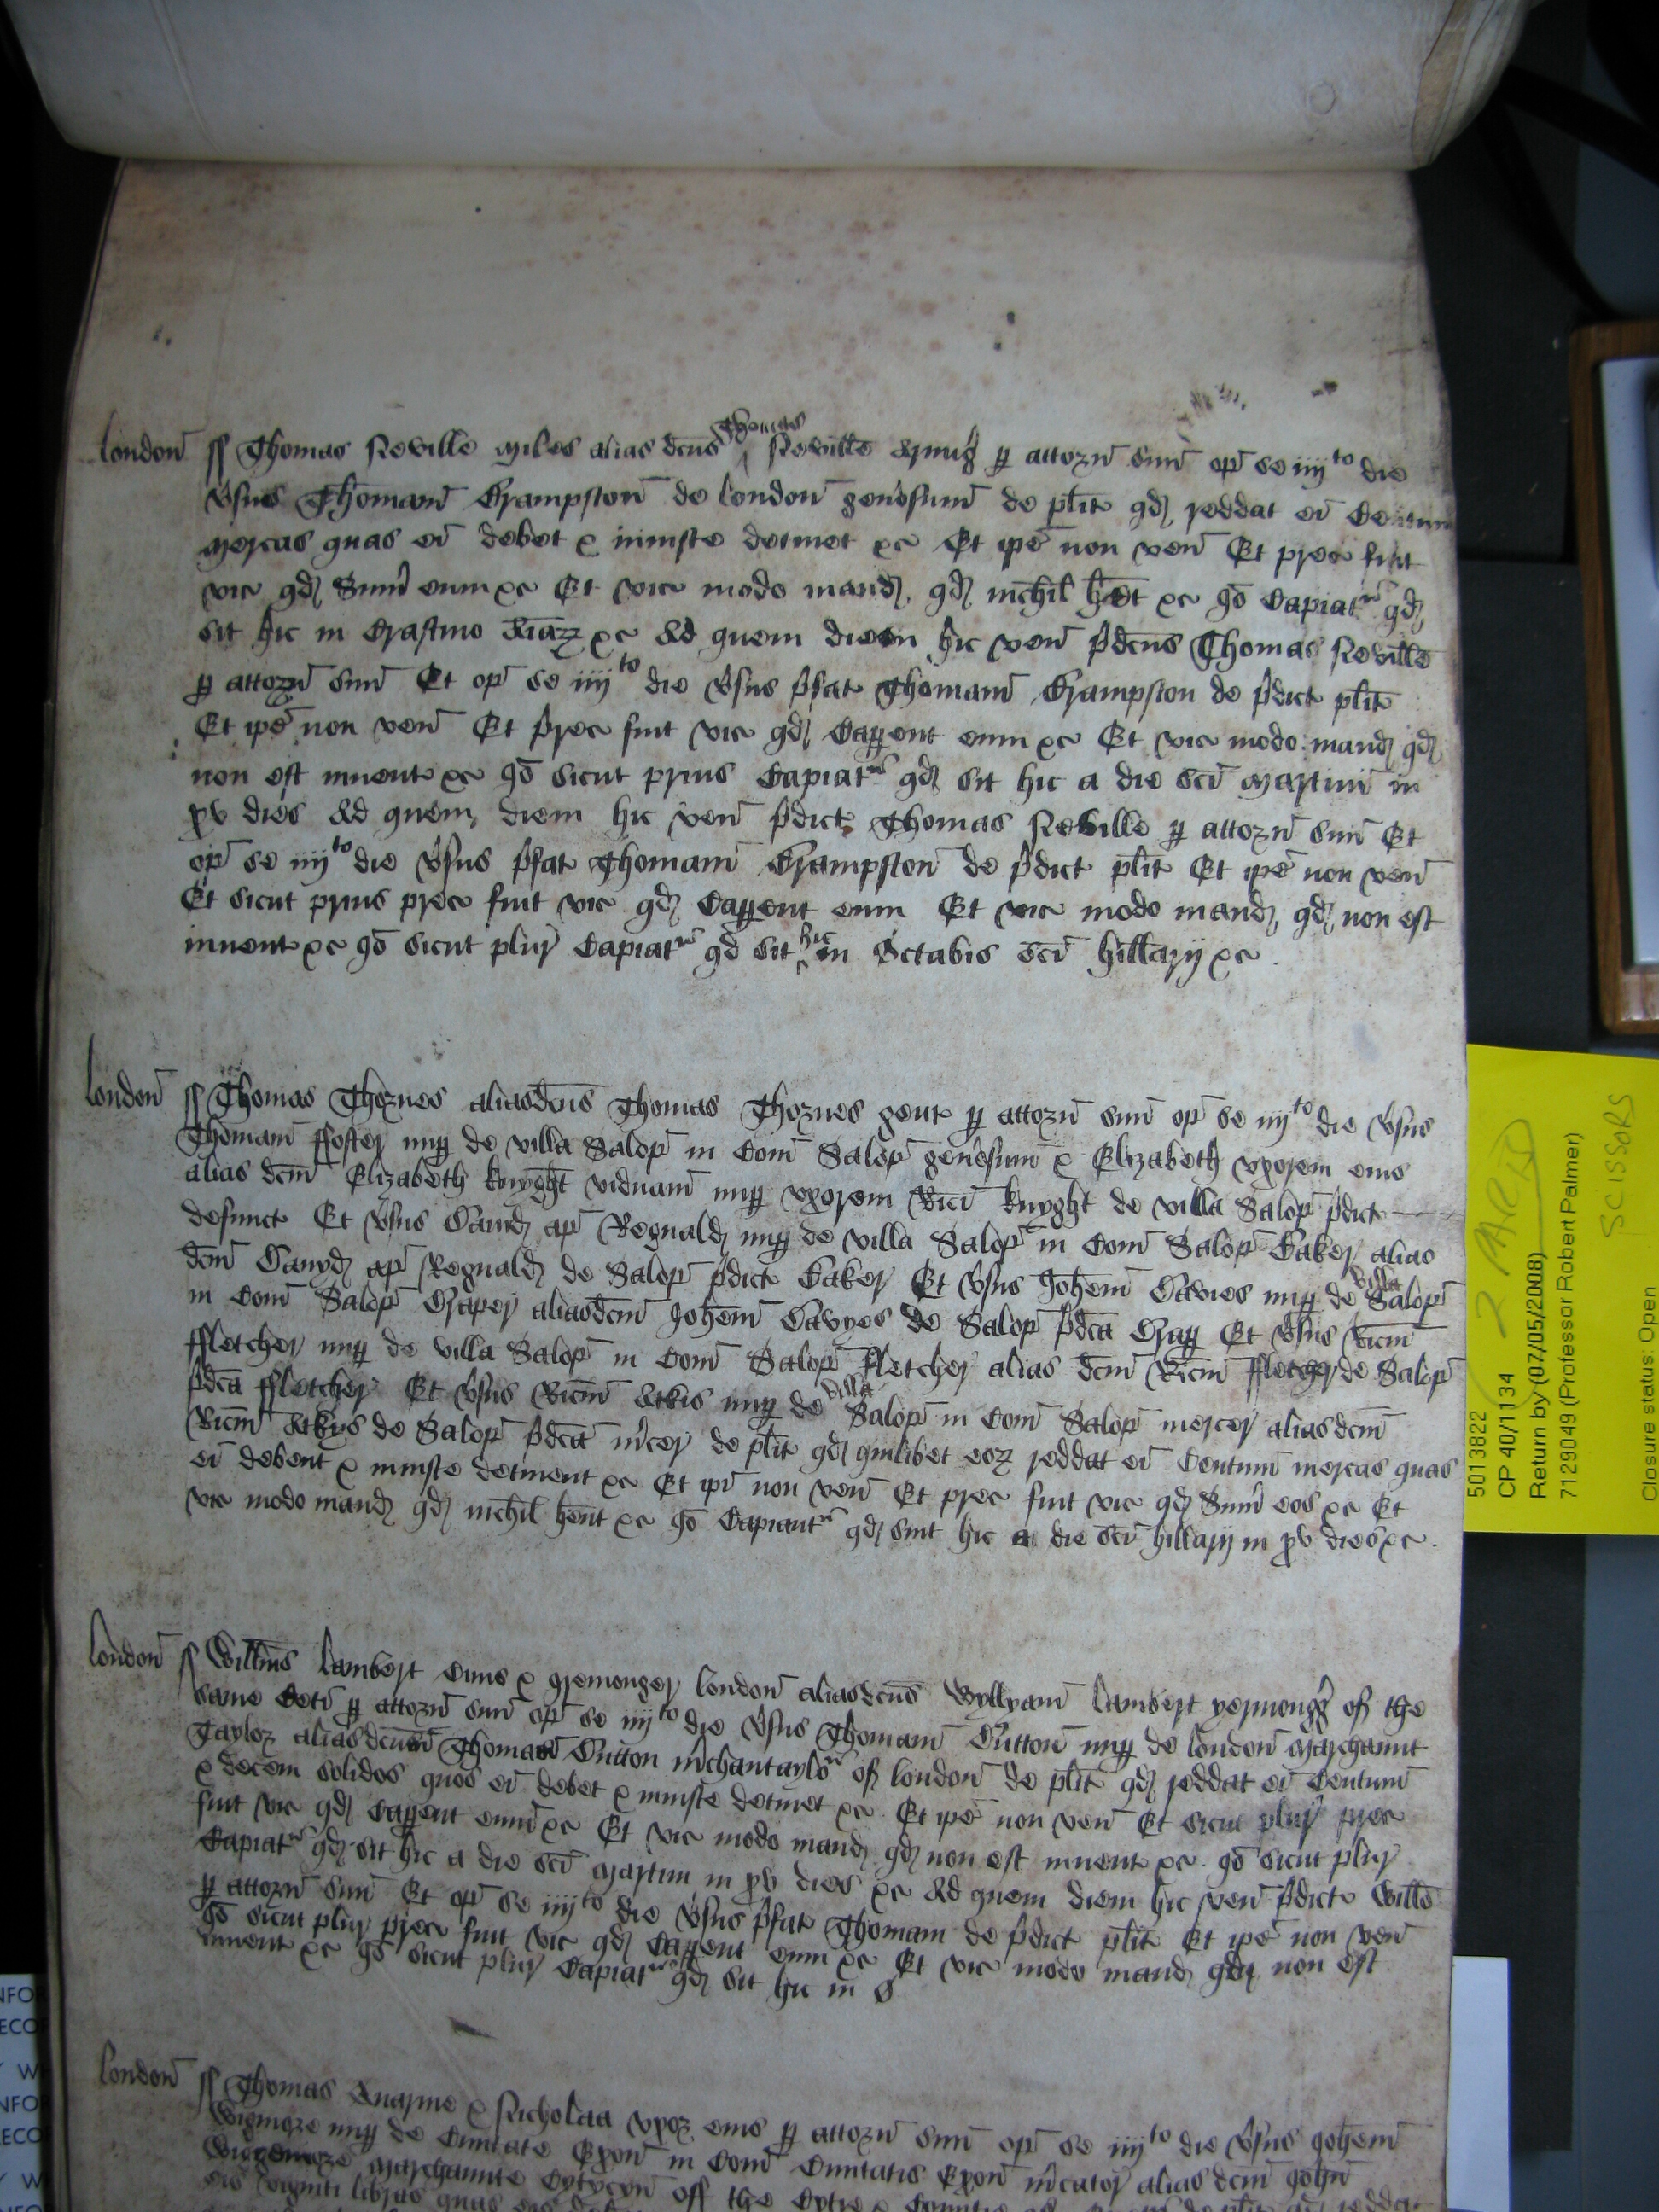 london ss Thomas Neville Miles alias dcus Thomas Neville Armig p attorn suu op se iiijto die
vsus Thomam Crampston de london genosum de plito qd reddat ei Centum
Mercas quas ei debet & iniuste detinet &c Et ipe non ven Et prec fuit
vic qd Sum eum &c Et vic modo mand qd nichil het &c Io Capiatr qd
sit hic in Crastino Aiaz &c Ad quem diem hic ven pdcus Thomas Neville
p attorn suu Et op se iiijto die vsus pfat Thomam Crampston de pdict plito
Et ipe non ven Et prec fuit vic qd Capent eum &c Et vic modo mand qd
non est invent &c Io sicut prius Capiatr qd sit hic a die sci Martini in
xv dies Ad quem diem hic ven pdict Thomas Neville p attorn suu Et
op se iiijto die vsus pfat Thomam Crampston de pdict plito Et ipe non ven
Et sicut prius prec fuit vic qd Capent eum Et vic modo mand qd non est
invent &c Io sicut plur Capiatr qd sit hic in Octabis sci hillarij &c
london ss Thomas Thornes alias dcus Thomas Thornes gent p attorn suu op se iiijto die vsus
Thomam ffoster nup de villa Salop in Com Salop genosum & Elizabeth vxorem eius
alias dcm Elizabeth knyght viduam nup vxorem Rici knyght de villa Salop pdict
defunct Et vsus David ap Regnald nup de villa Salop in Com Salop Baker alias
dcm Davyd ap Regnald de Salop pdict Baker Et vsus Johem Davies nup de villa Salop
in Com Salop Draper alias dcm Johem Davyes de Salop pdca Drap Et vsus Ricm
ffletcher nup de villa Salop in Com Salop ffletcher alias dcm Ricm ffletcher de Salop
pdca ffletcher Et vsus Ricm Atkis nup de villa Salop in Com Salop mercer alias dcm
Ricm Atkys de Salop pdca mcer de plito qd quilibet eoz reddat ei Centum mercas quas
ei debent & iniuste detinent &c Et ipi non ven Et prec fuit vic qd Sum eos &c Et
vic modo mand qd nichil hent &c Io Capiantr qd sint hic a die sci hillarij in xv dies &c
london ss Willms lambert Civis & Iremonger london alias dcus Wyllyam lambert yermonger of the
same Cete p attorn suu op se iiijto die vsus Thomam Dutton nup de london Marchaunt
Taylor alias dcum Thomam Dutton mchantaylor of london de plito qd reddat ei Centum
& decem solidos quos ei debet & iniuste detinet &c Et ipe non ven Et sicut plur prec
fuit vic qd Capent eum &c Et vic modo mand qd non est invent &c Io sicut plur
Capiatr qd sit hic a die sci Martini in xv dies &c Ad quem diem hic ven pdict Wills
p attorn suu Et op se iiijto die vsus pfat Thomam de pdict plito Et ipe non ven
Io sicut plur prec fuit vic qd Capent eum &c Et vic modo mand qd non est
invent &c Io sicut plur Capiatr qd sit hic in O
london ss Thomas Quarme & Nicholaa vxor eius p attorn suu op se iiijto die vsus Johem
Wigmore nup de Civitate Exon in Com Civitatis Exon mcator alias dcm John
Marchaunte Cytyzyn off the Cytye & Countie
viginti libras quas
5013822
CP 40/1134
Return by (07/05/2008)
7129049 (Professor Robert Palmer)
Closure status: Open
2 MAR
SCISSORS